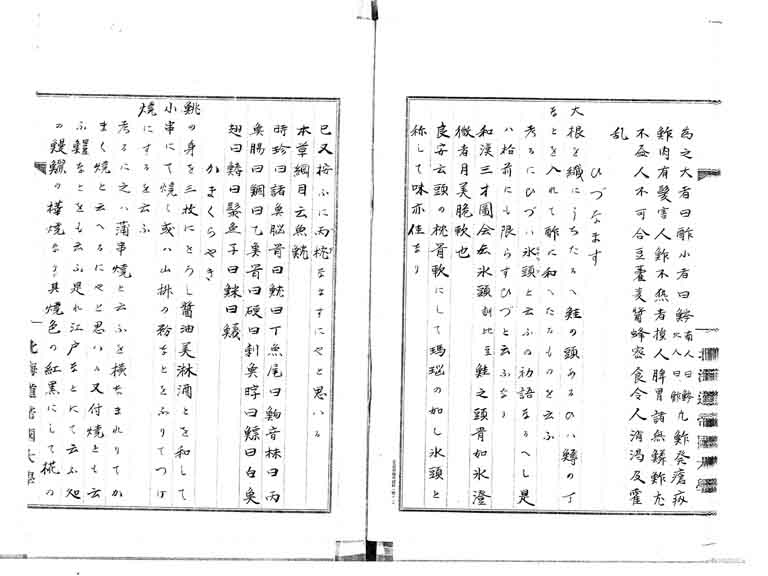 為之大者曰酢小者曰鮗南人曰鮗北人曰鮓凡鮓発瘡疥
鮓肉有髪害人鮓不熟者損人脾胃諸無鱗鮓尤
不益人不可合豆藿麦醤蜂蜜食令人消渇及霍
乱
ひづなます
大根を繊にうちたるへ鮭の頭あるひハ鱒の丁
をとを入れて酢に和へたるものを云ふ
考るにひづハ氷頭と云ふの訪語なるへし是
ハ格前にも限らすひづと云ふなり
和漢三才圖会云氷頭鮭之頭骨如氷澄
徹者月美脆軟也
良安云頭の枕骨軟にして瑪瑙の如し氷頭と
称して味亦佳なり
已又按ふに両枕なますにやと思いる
本草綱目云魚魫
時珍曰諸魚脳骨曰魫曰丁魚尾曰魶音抹曰丙
魚腸曰鯝曰乙魚骨曰硬曰刺魚脬曰鰾曰白魚
翅曰鰭曰鬣魚子曰鮇曰䱊
かまくらやき
鮡の身を三枚にをろし醤油美淋酒とを和して
小串にて焼く或ハ山椒の粉なとをふりてつけ
焼にするを云ふ
考るに之ハ蒲串焼と云ふを横なまれりてか
まく焼と云へるにやと思いる又付焼とも云
ふ鰻なともも云ふ是れ江戸なとにて云ふ処
の鰻鱺の樺焼なり具焼色の紅黒にして椛の
北海道帝国大学
北海道帝國大學